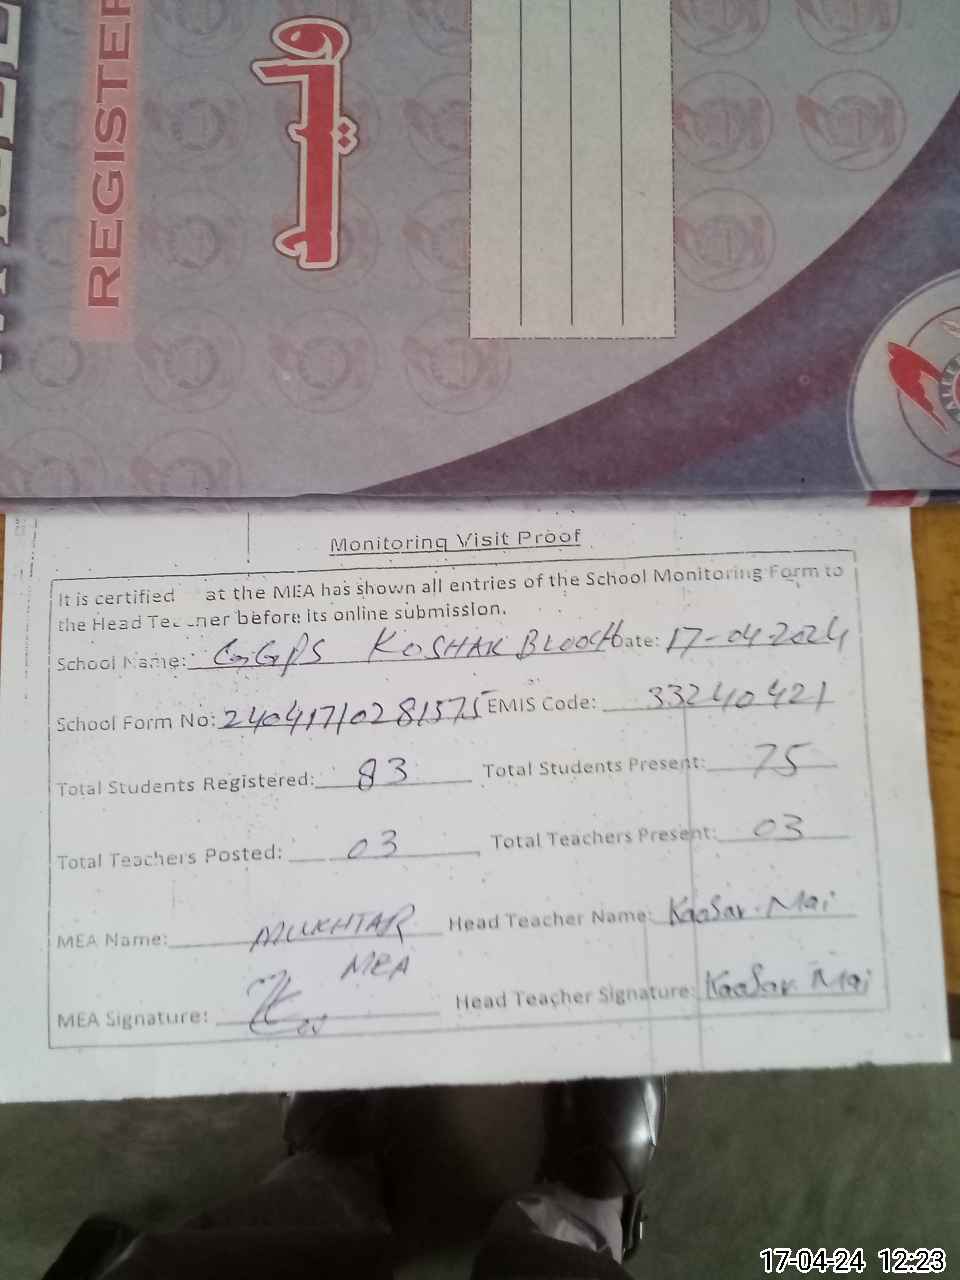 REGISTER
ولید
Monitoring Visit Proof
It is certified at the MEA has shown all entries of the School Monitoring Form to
the Head Teacher before its online submission.
School Name: GGPS KOSHAK BLOOCH Date: 17-04-2024
School Form No: 24041710281575 EMIS Code: 33240421
Total Students Registered: 83 Total Students Present: 75
Total Teachers Posted: 03 Total Teachers Present: 03
MEA Name: MUKHTAR Head Teacher Name: KaoSar. Mai
MEA
MEA Signature: Head Teacher Signature: KaoSar Mai
17-04-24 12:23